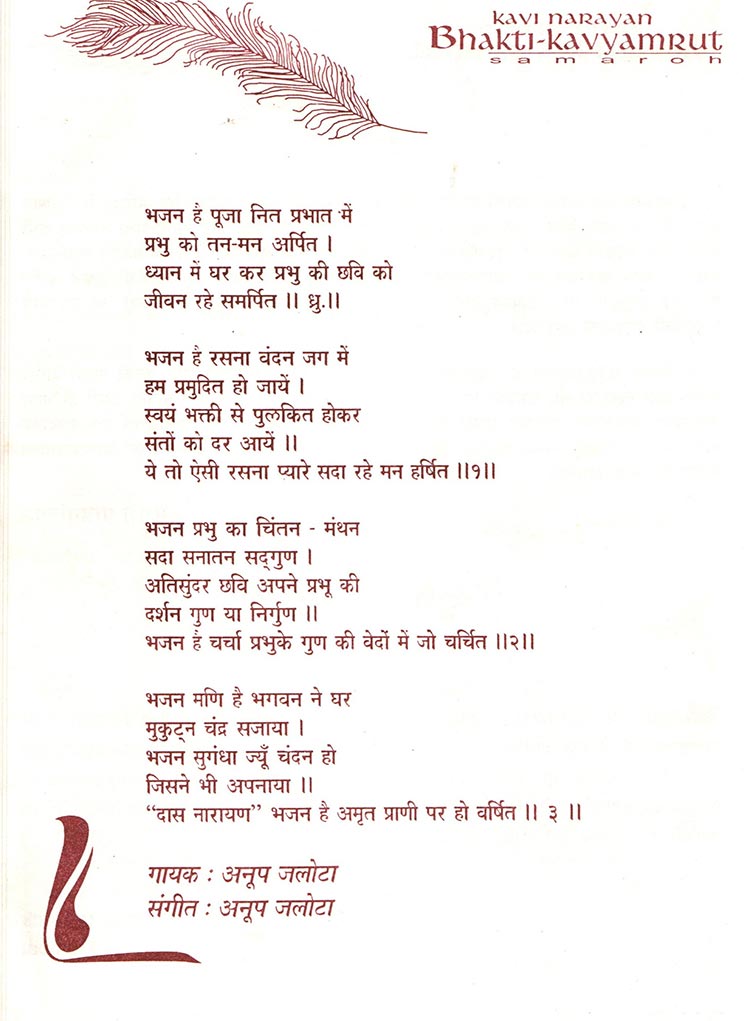 KAVI NARAYAN
Bhakti-kavyamrut
samaroh
भजन है पूजा नित प्रभात में
प्रभु को तन-मन अर्पित ।
ध्यान में घर कर प्रभु की छवि को
जीवन रहे समर्पित ॥ ध्रु.॥
भजन है रसना वंदन जग में
हम प्रमुदित हो जायें ।
स्वयं भक्ती से पुलकित होकर
संतों को दर आयें ॥
ये तो ऐसी रसना प्यारे सदा रहे मन हर्षित ॥१॥
भजन प्रभु का चिंतन - मंथन
सदा सनातन सद्‌गुण ।
अतिसुंदर छवि अपने प्रभू की
दर्शन गुण या निर्गुण ॥
भजन है चर्चा प्रभुके गुण की वेदों में जो चर्चित ॥२॥
भजन मणि है भगवन ने घर
मुकुट्न चंद्र सजाया ।
भजन सुगंधा ज्यूँ चंदन हो
जिसने भी अपनाया ॥
“दास नारायण” भजन है अमृत प्राणी पर हो वर्षित ॥ ३ ॥
गायक : अनूप जलोटा
संगीत : अनूप जलोटा